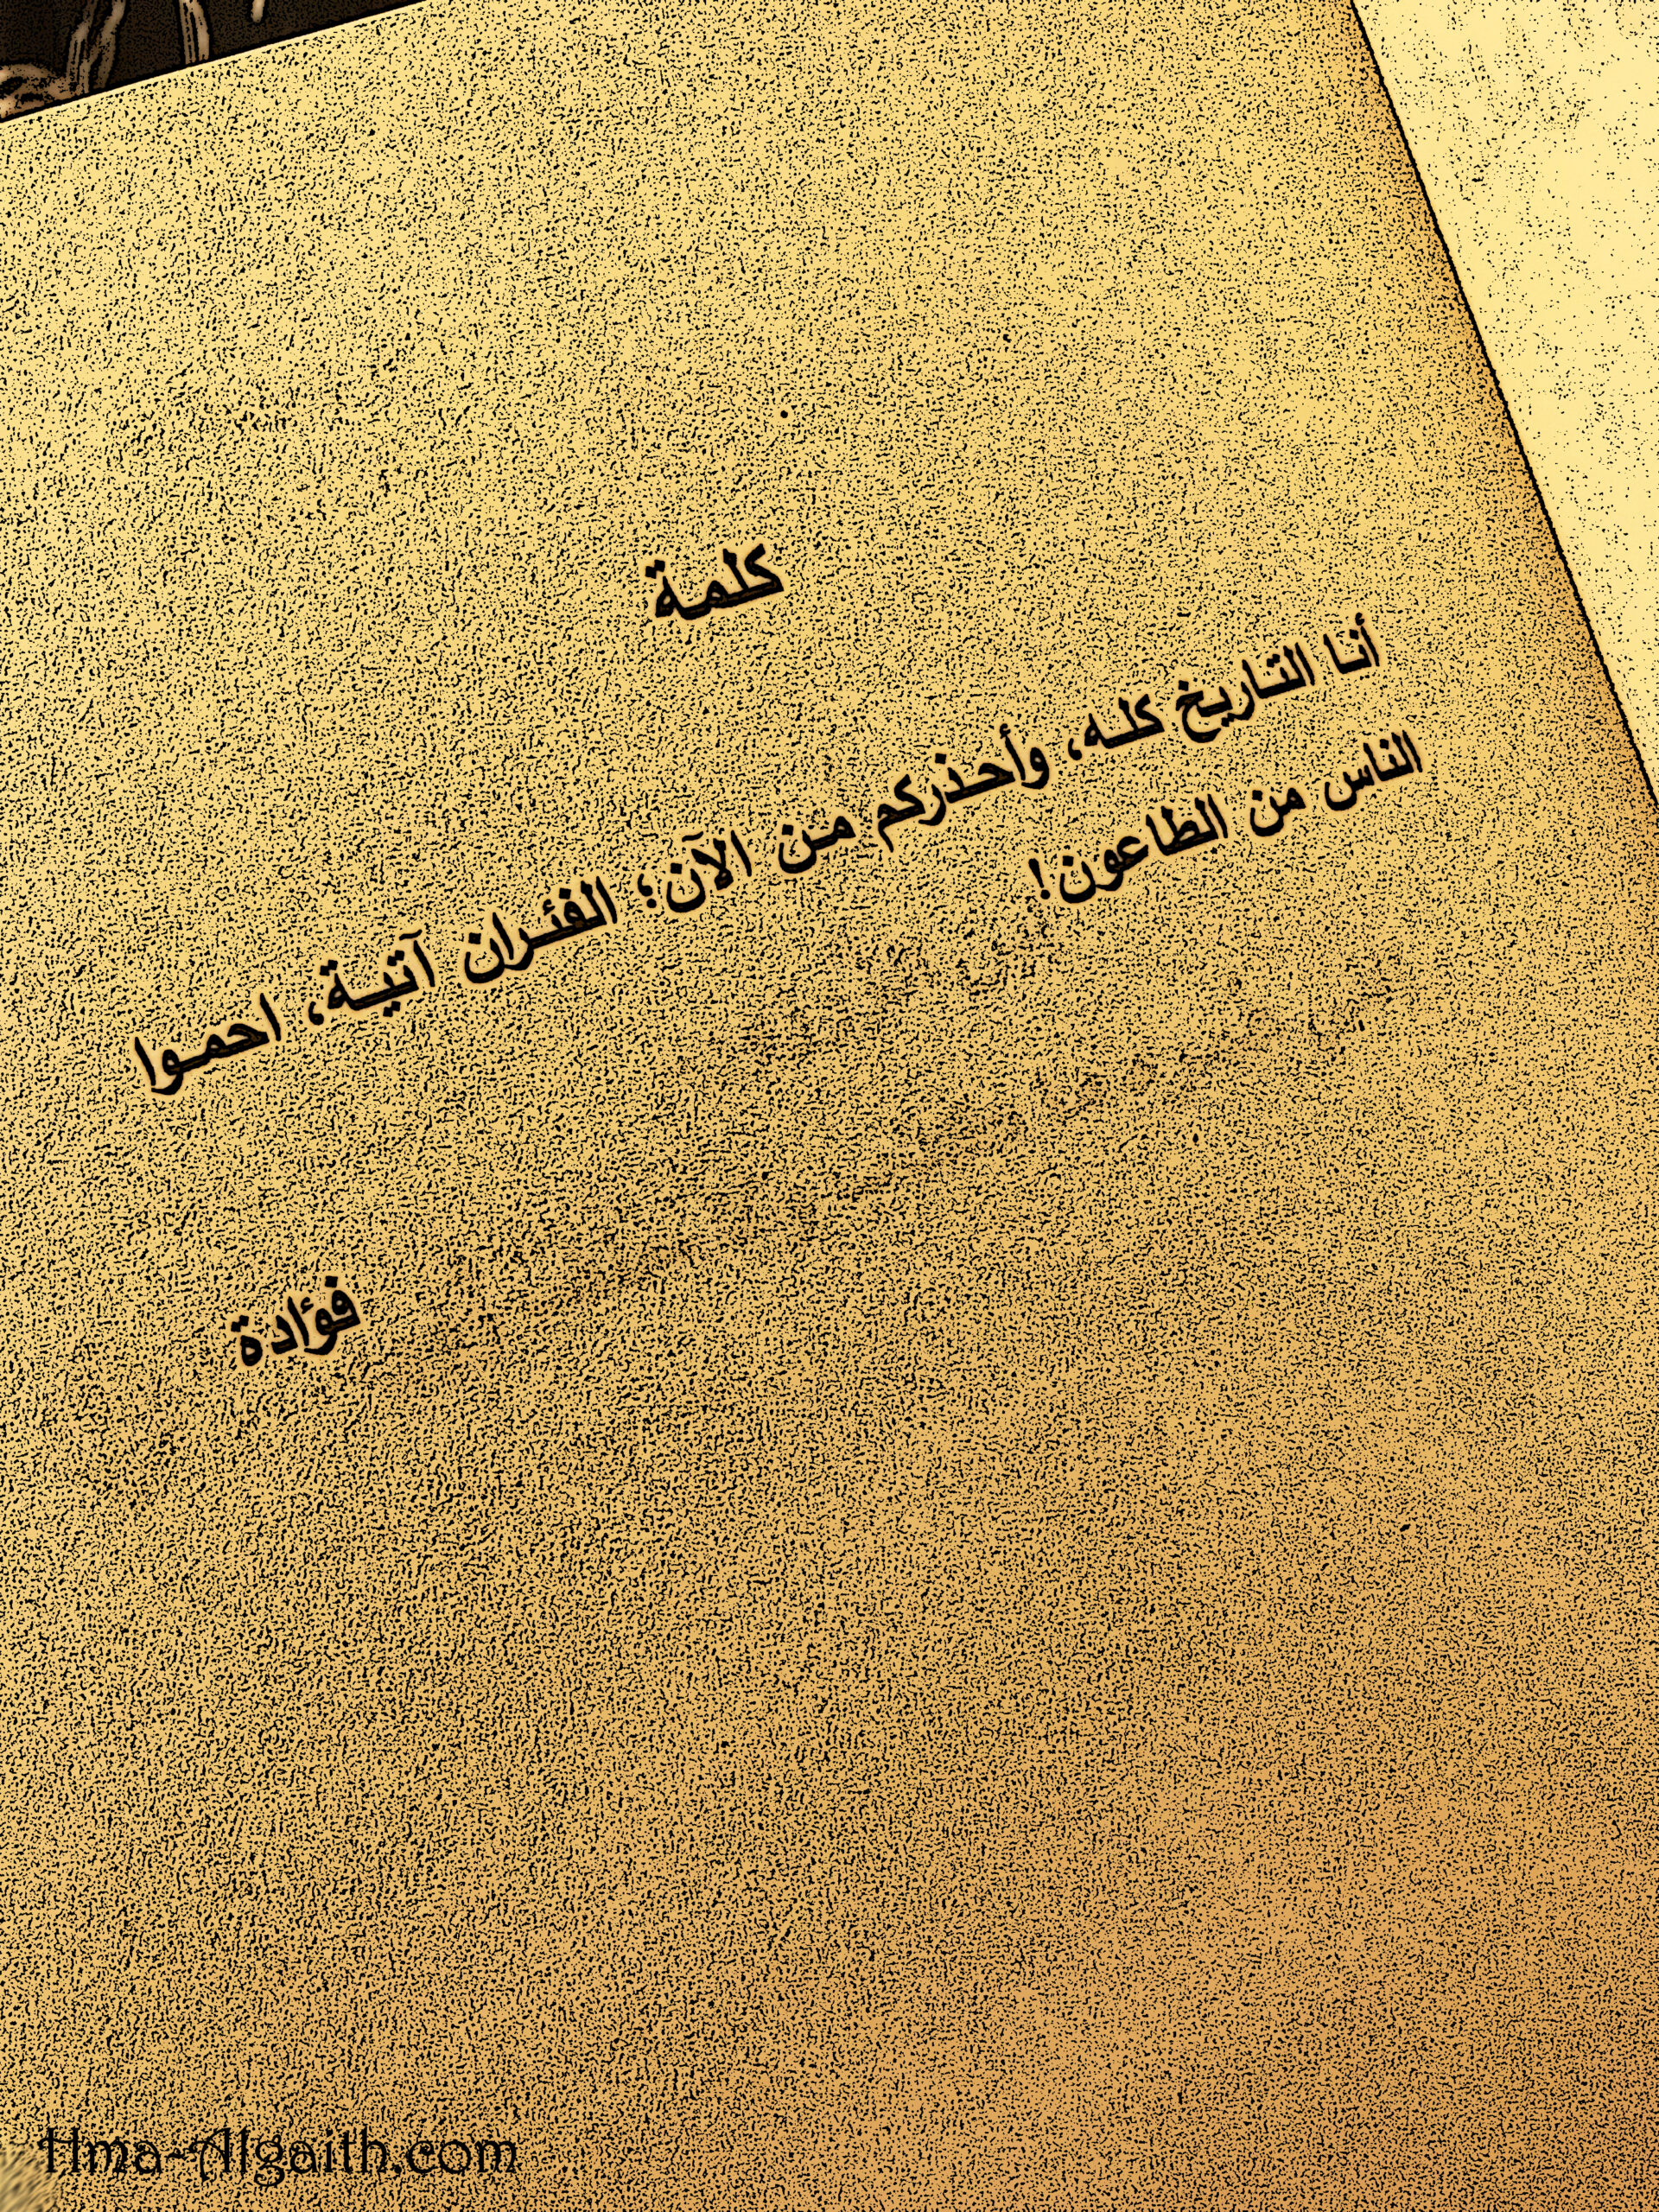 كلمة
أنا التاريخ كله، وأحذركم من الآن؛ الفئران آتية، احموا
الناس من الطاعون!
فؤادة
Hma-Algaith.com